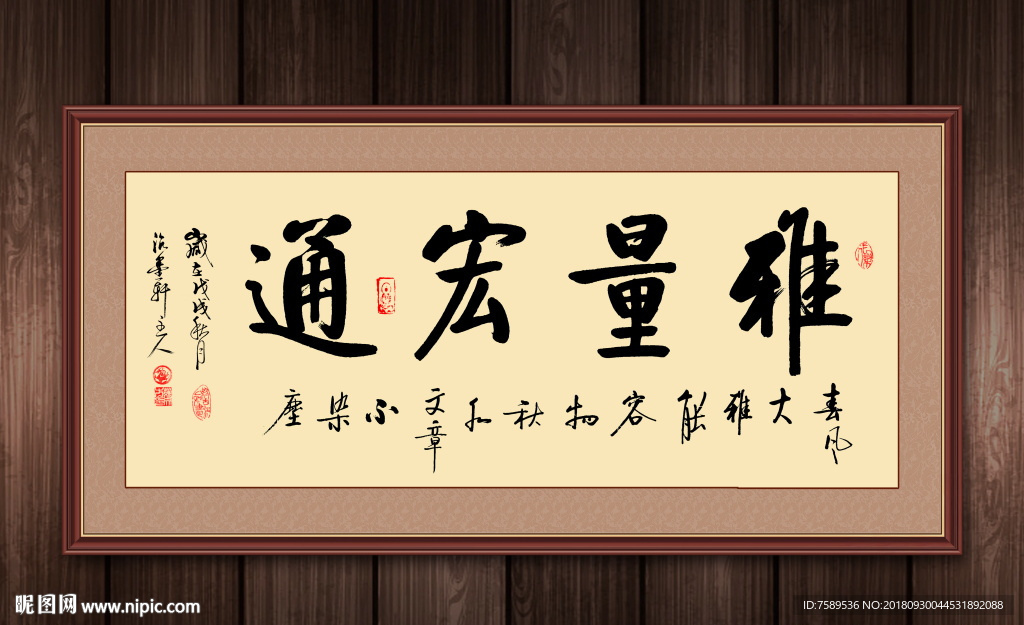 雅量宏通
春风大雅能容物秋水文章不染尘
岁在戊戌秋月
墨轩主人
昵图网 www.nipic.com
ID:7589536 NO:20180930044531892088